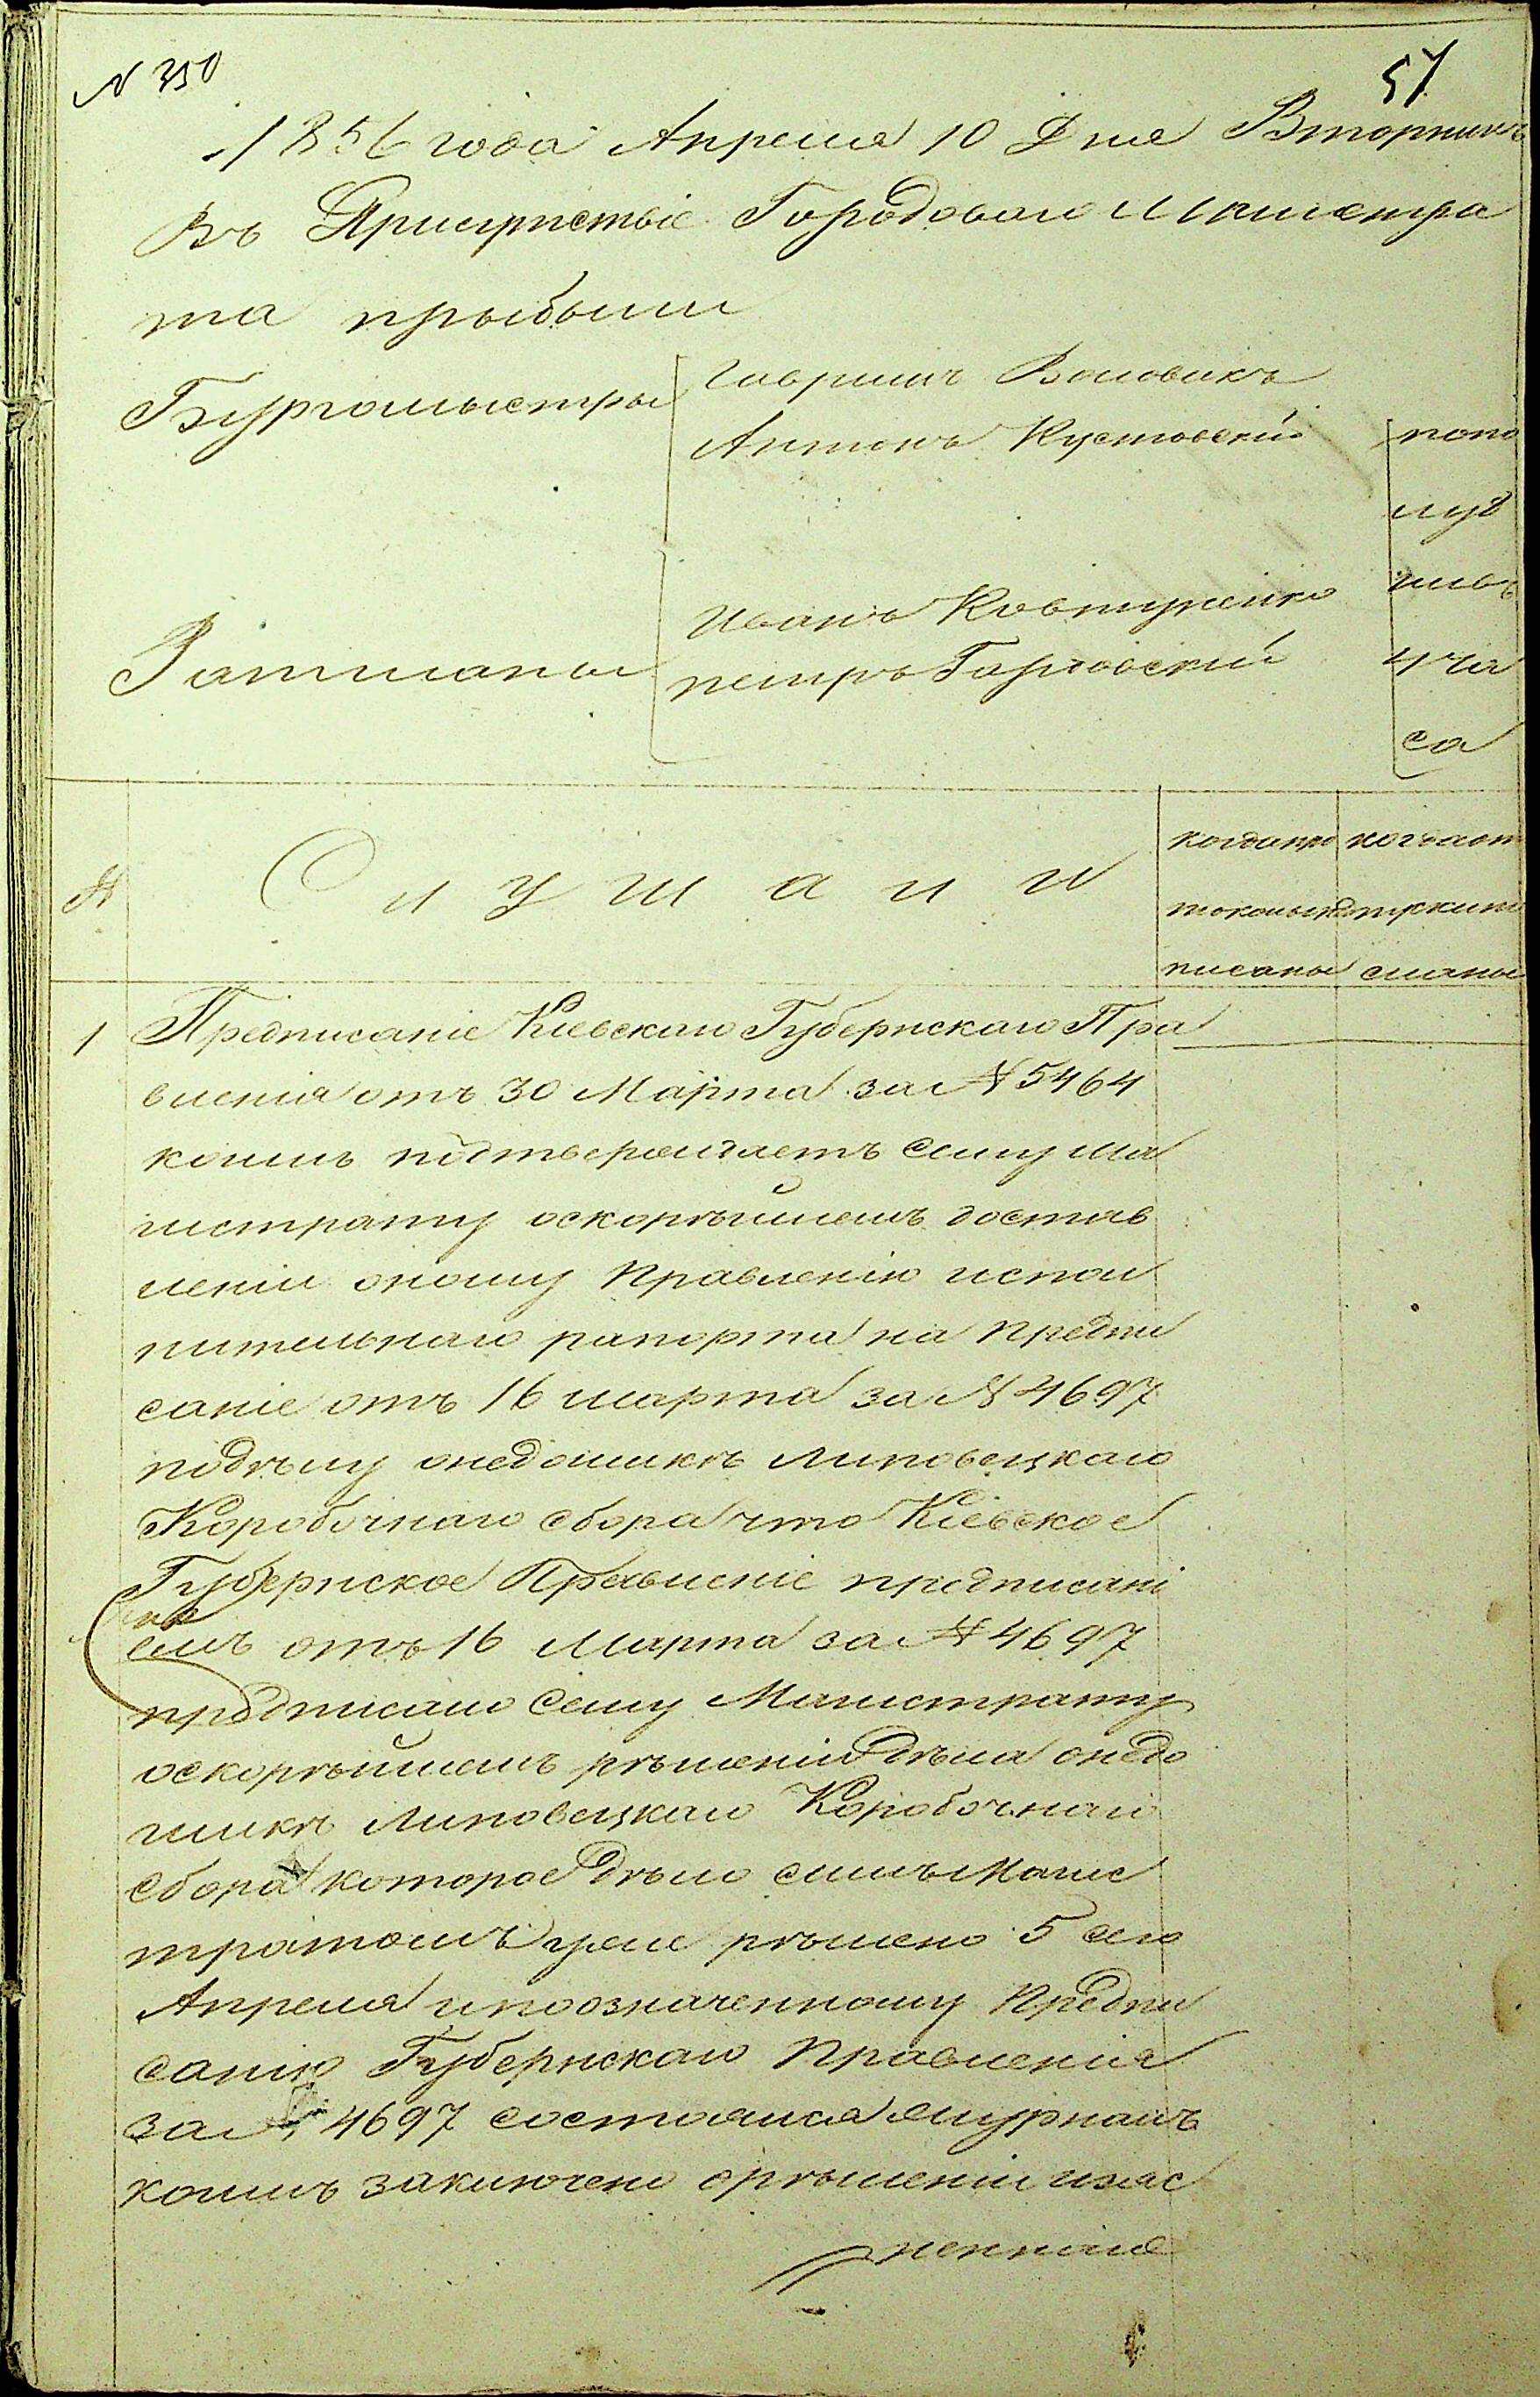 N 350
51
1856 года Апреля 10 Дня Вторникъ
Въ Присутствіе Городоваго Магистра
та прыбыли
Бургомыстры
Гаврыилъ Воловикъ
Антонъ Кустовскій
Ратманы
Иванъ Ковтуненко
петръ
попо
луд
ни въ
4 ча
са
№
Слушали
когда про
токолы под
писаны
когда от
пуски по
сланы
1 Предписаніе Кіевскаго Губернскаго Пра
вленія отъ 30 Марта за № 5464
коимъ подтверждаетъ Сему Ма
гистрату оскорѣйшемъ достав
леніи оному Правленію испол
нительнаго рапорта на Предпи
саніе отъ 16 марта за № 4697
подѣлу онедоимкѣ Липовецкаго
Коробочнаго сбора что Кіевское
Губернское Правленіе предписані
емъ отъ 16 Марта за № 4697
предписало Сему Магистрату
оскорѣйшемъ рѣшеніи дѣла онедо
имкѣ Липовецкаго Коробочнаго
сбора которое дѣло симъ Магис
тратомъ уже рѣшено 5 сего
Апреля и поозначенному Предпи
санію Губернскаго Правленія
за № 4697 состоялся Журналъ
коимъ заключено орѣшеніи изяс
ненная